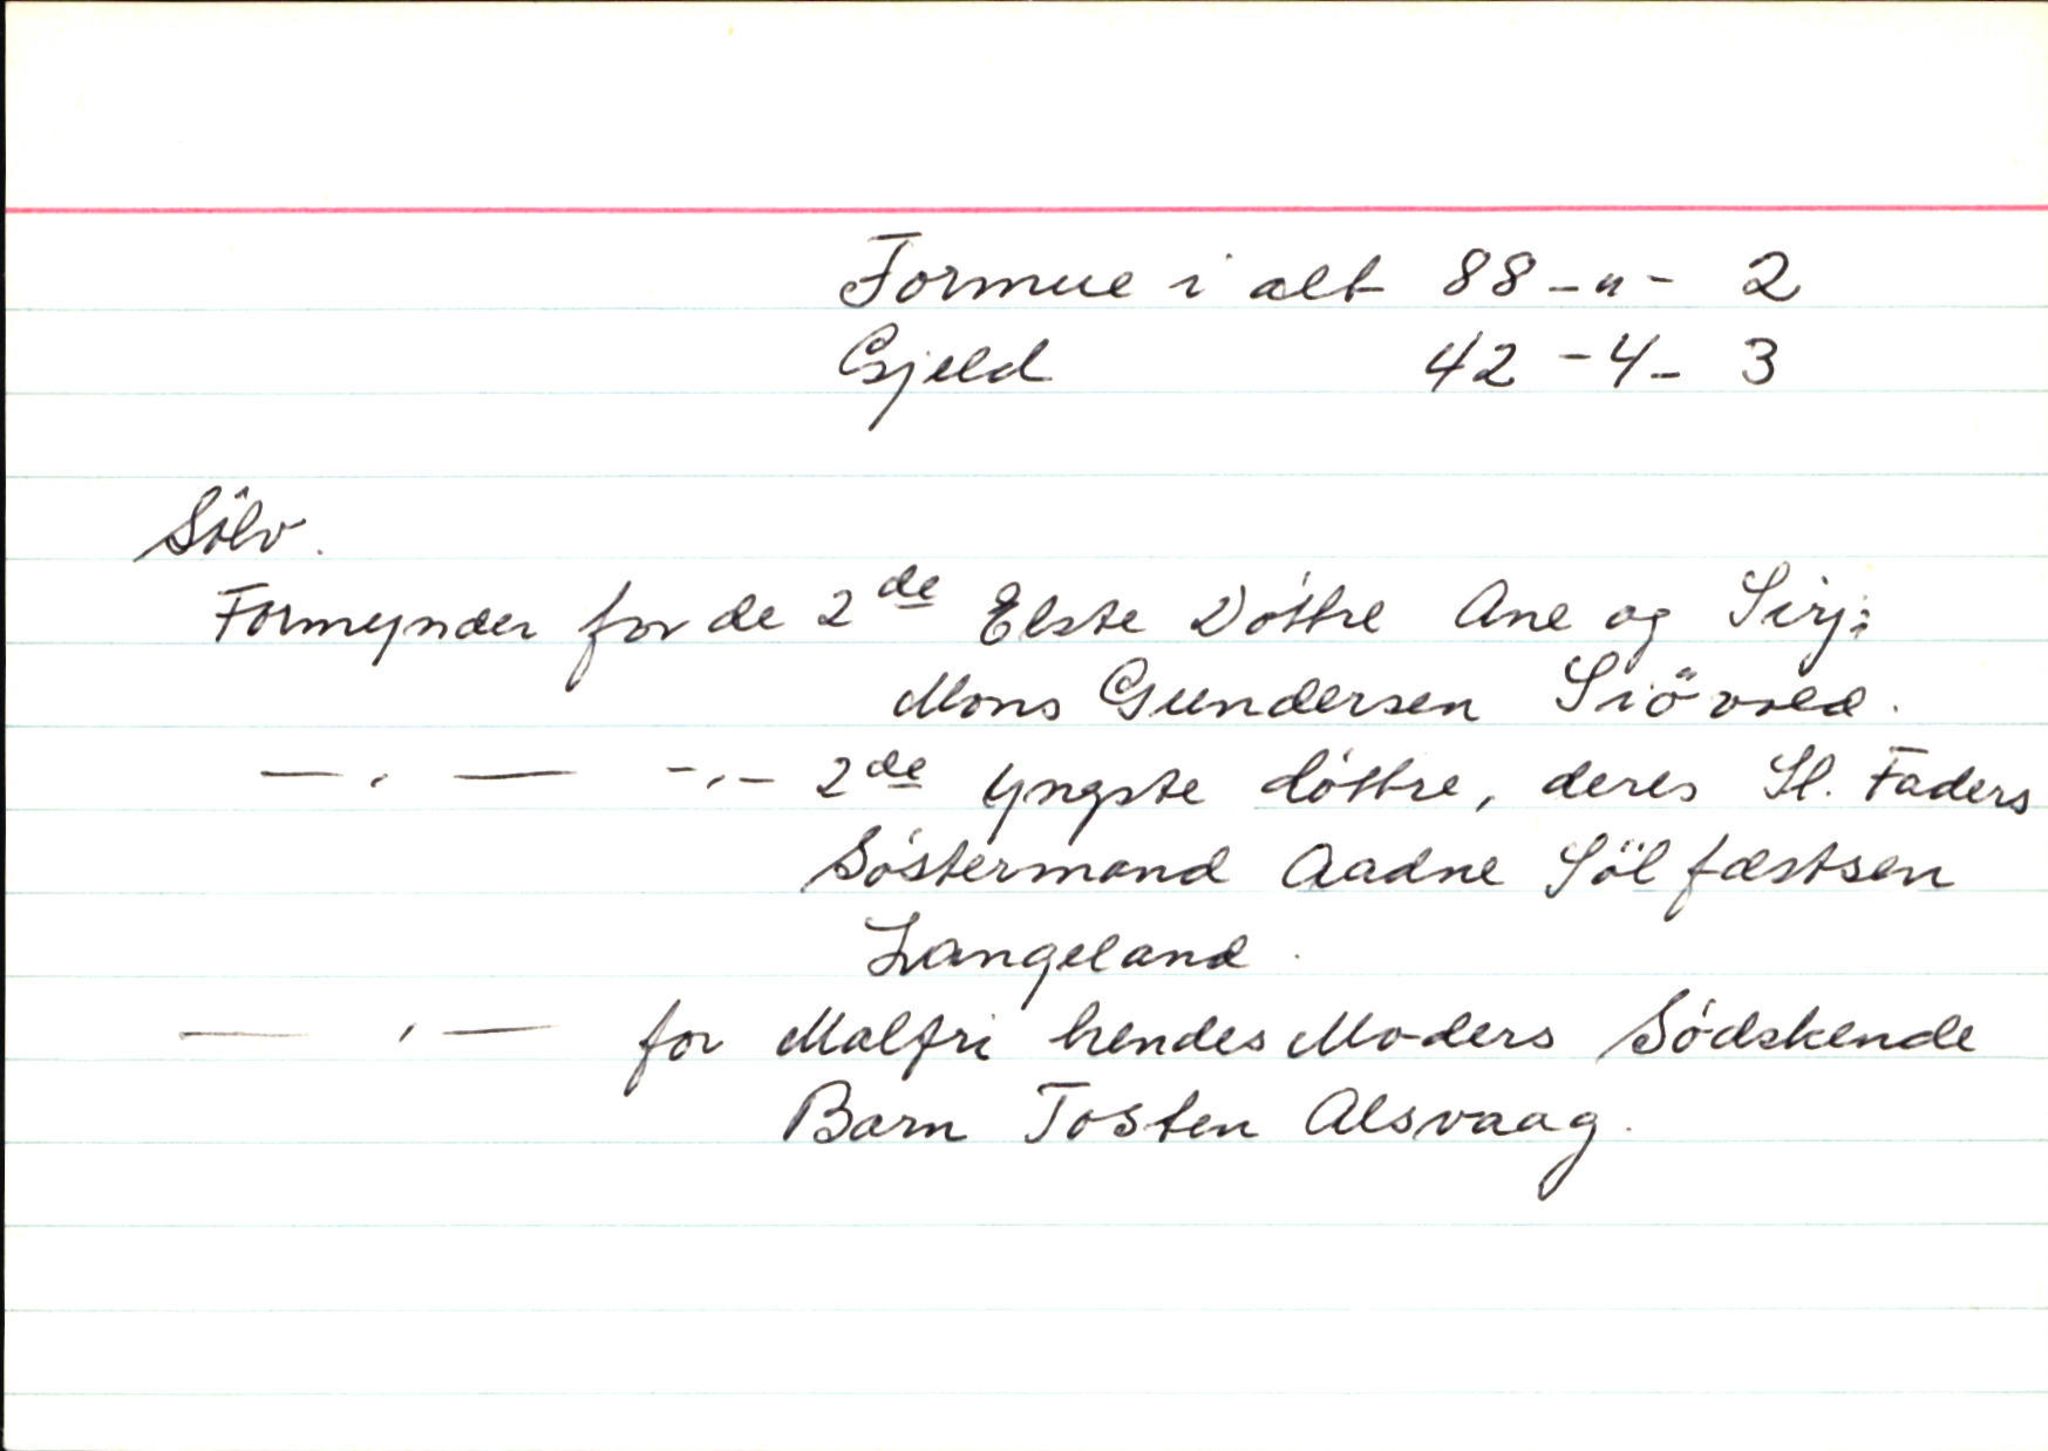 Formue i alt 88 - " - 2
Gjeld 42 - 4 - 3
Sölv.
Formynder for de 2de Elste Döttre Ane og Sirj:
Mons Gundersen Siövold.
— , — - , - 2de yngste döttre, deres Sl. Faders
Söstermand Aadne Sölfæstsen
Langeland.
— , — for Malfri hendes Moders Södskende
Barn Tosten Alsvaag.